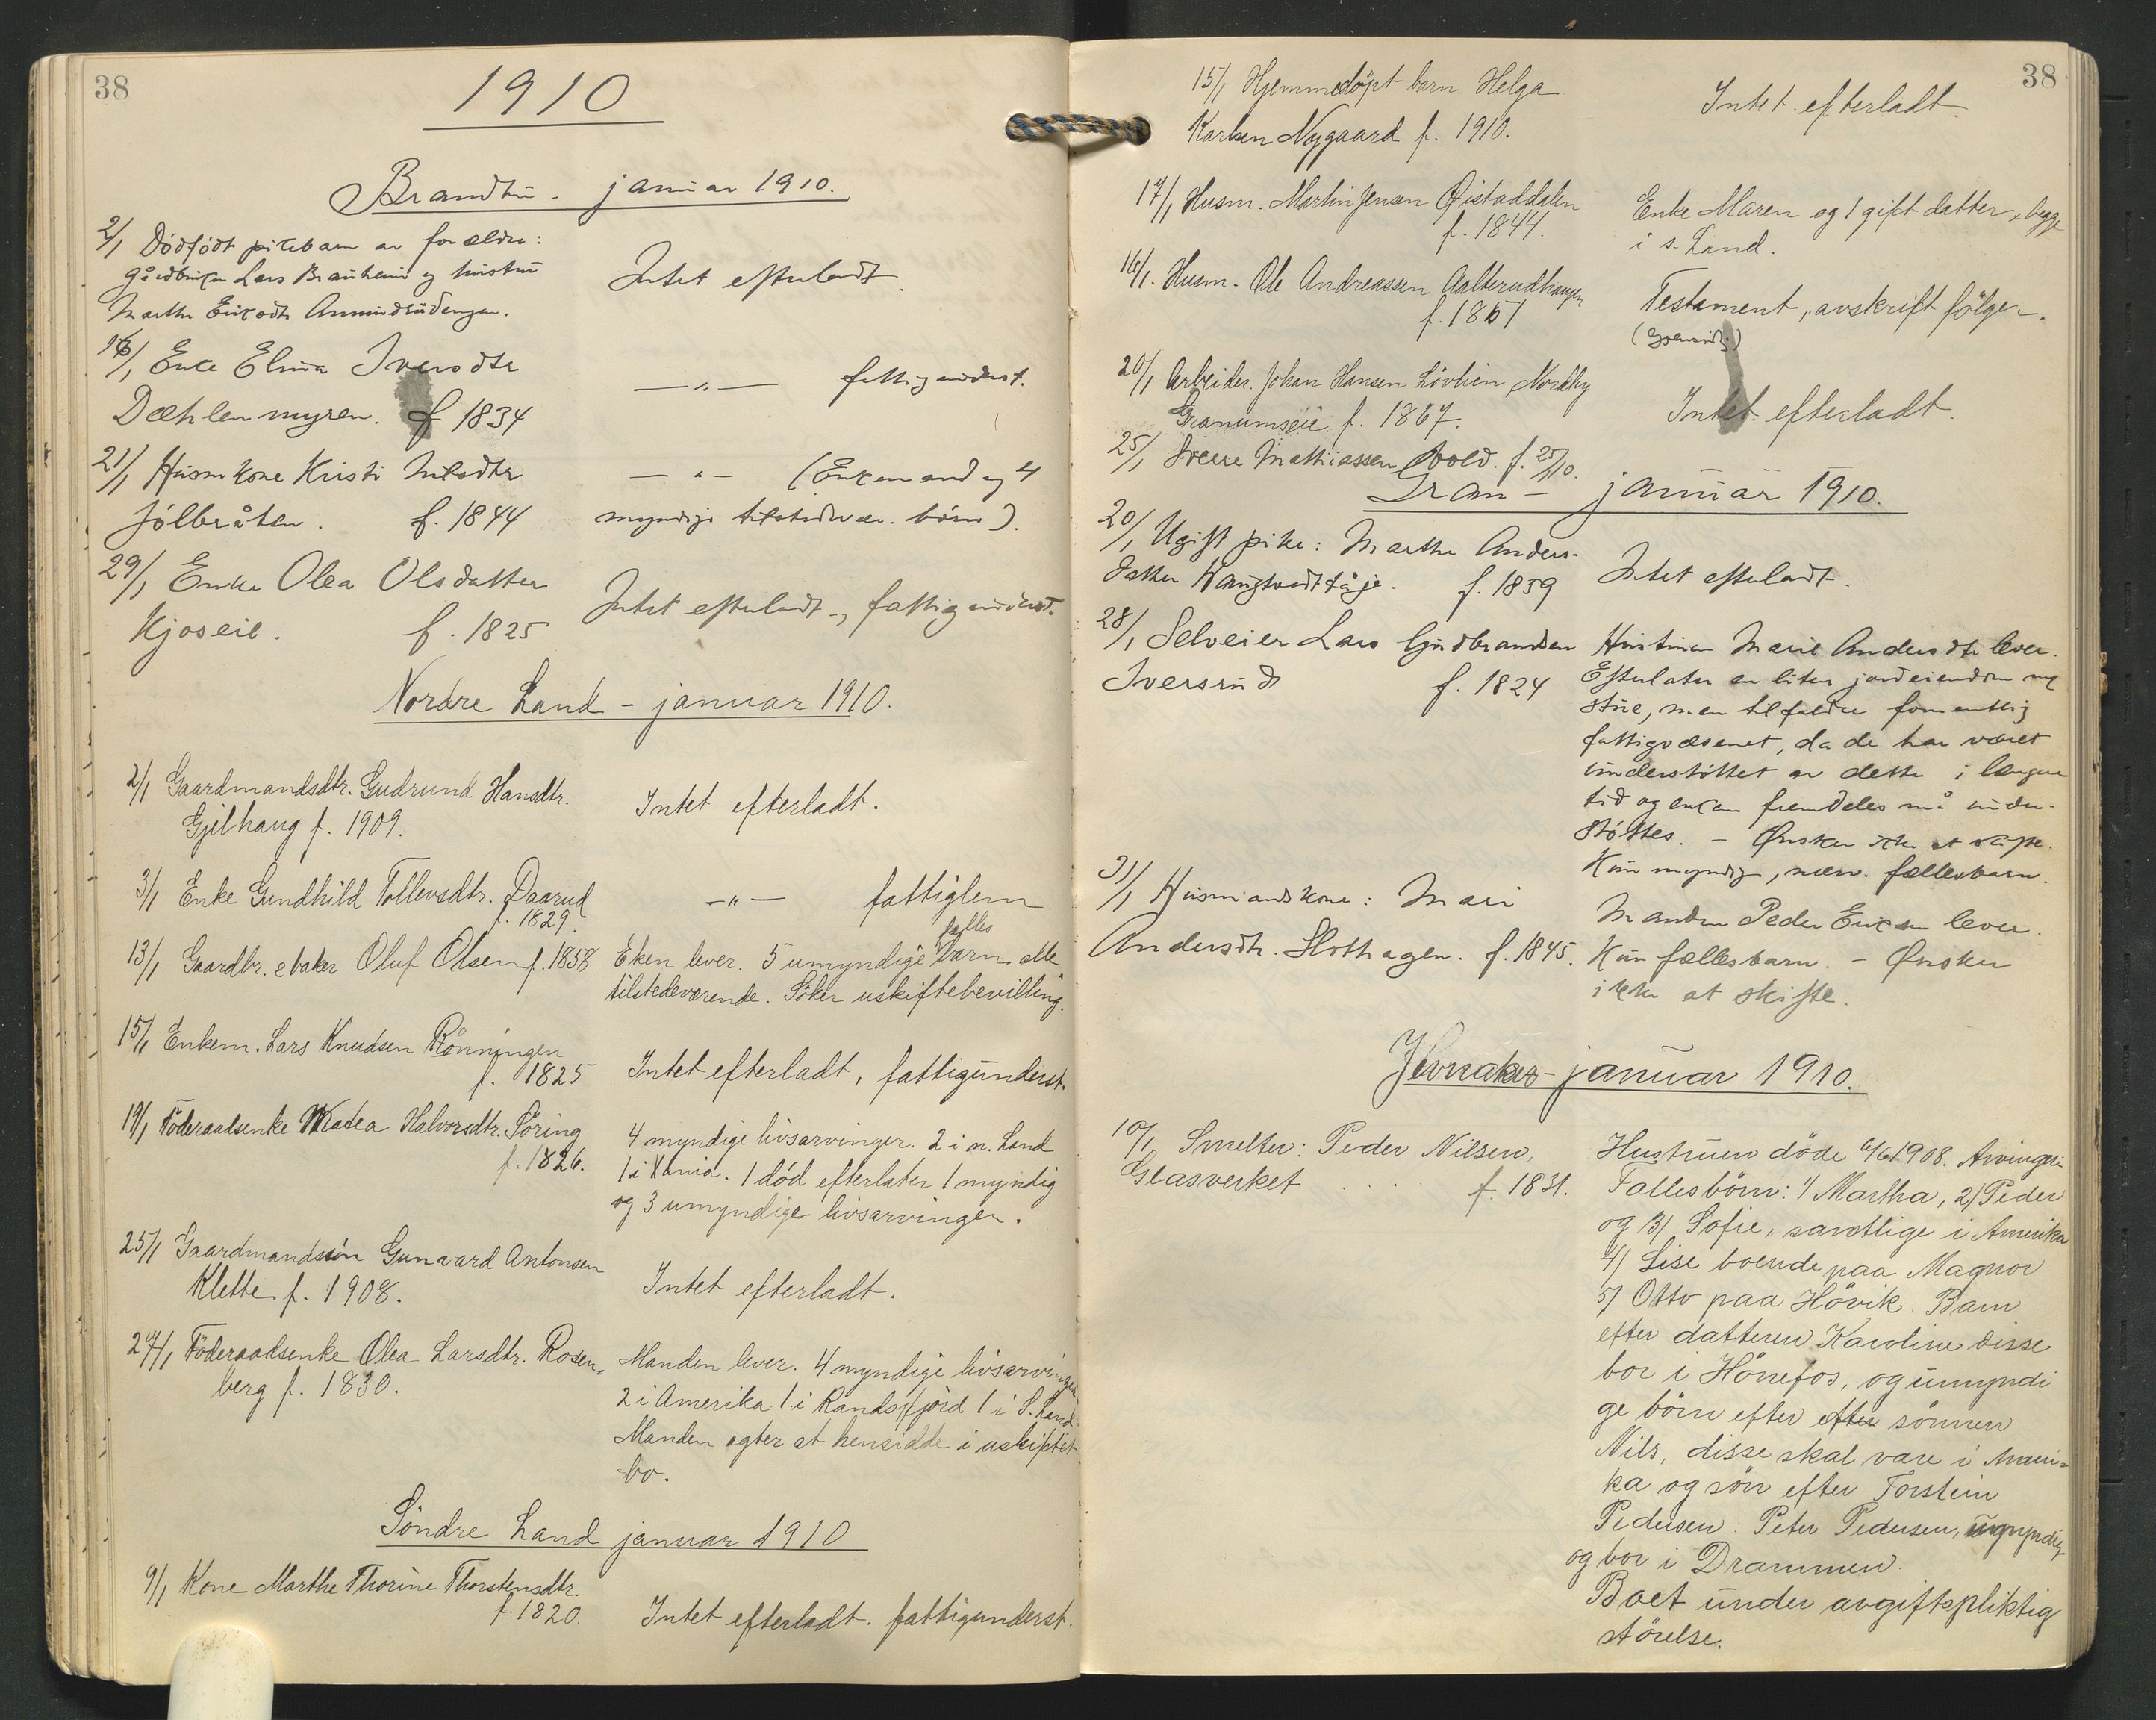 38
1910
Brandbu - januar 1910.
2/1 Dödfödt pikebarn av forældre:
gårdbruker Lars Brauheim og hustru
Marthe Eriksdtr
Intet efterladt.
16/1 Enke Elina Iversdtr
Dæhlenmyren. f 1834
—„— fattigunderst.
21/1 Husmkone Kristi Nilsdtr
Jölbråten. f. 1844
—„— (Enkemand og 4
myndige tilstedvær. börn).
29/1 Enke Olea Olsdatter
Kjoseie. f. 1825
Intet efterladt, fattigunderst.
Nordre Land - januar 1910.
2/1 Gaardmandsdtr. Gudrund Hansdtr.
Gjilhaug f. 1909.
Intet efterladt.
3/1 Enke Gundhild Tollevsdtr. Daarud
f. 1829.
—„— fattiglem
13/1 Gaardbr. & baker Oluf Olsen f. 1858
Eken lever. 5 umyndige fælles barn alle
tilstedeværende. Söker uskiftebevilling.
15/1 Enkem. Lars Knudsen Rönningen
f. 1825
Intet efterladt, fattigunderst.
19/1 Föderaadsenke Madea Halvorsdtr. Söring
f. 1826.
4 myndige livsarvinger. 2 i n. Land
1 i Xania. 1 död efterlater 1 myndig
og 3 umyndige livsarvinger.
25/1 Gaardmandssön Gunvard Antonsen
Klette f. 1908.
Intet efterladt.
27/1 Föderaadsenke Olea Larsdtr. Rosen-
berg f. 1830.
Manden lever. 4 myndige livsarvinger
2 i Amerika 1 i Randsfjord 1 i S. Land.
Manden agter at hensidde i uskiftet
bo.
Söndre Land januar 1910
9/1 Kone Marthe Thorine Thorstensdtr.
f. 1820.
Intet efterladt. fattigunderst.
38
15/1 Hjemmedöpt barn Helga
Karlsen Nygaard f. 1910.
Intet efterladt.
17/1 Husm. Martin Jensen Öistaddalen
f. 1844.
Enke Maren og 1 gift datter, begge
i s. Land.
16/1. Husm. Ole Andreassen Aalterudhaugen
f. 1861
Testament, avskrift fölger.
20/1 Arbeider. Johan Hansen Lövlien Nordby
Granumseie f. 1867.
Intet efterladt.
25/1 Sverre Mathiassen f. 25/1 10.
Gran - januar 1910.
20/1 Ugift pike: Marthe Anders-
datter f. 1839
Intet efterladt.
28/1 Selveier Lars Gudbrandsen
Iversrud f. 1824
Hustruen Marie Andersdtr lever.
Efterlater en liten jordeiendom og
stue, men tilfalder formentlig
fattigvæsenet, da de har været
understöttet av dette i længere
tid og enken fremdeles må under-
stöttes. - Önsker ikke at skifte.
Kun myndige, nærv. fællesbarn.
31/1 Husmandskone: Mari
Andersdtr. Slotthagen. f. 1845.
Manden Peder Eriksen lever.
Kun fællesbarn. - Önsker
ikke at skifte.
Jevnaker - januar 1910.
10/1 Smelter: Peder Nilsen,
Glasverket . . . . f. 1831.
Hustruen döde 6/6 1908. Arvinger:
Fallesbörn: 1/ Martha, 2/ Peder
og 3/ Sofie, samtlige i Amerika
4/ Lise boende paa Magnor
5/ Otto paa Hövik. Barn
efter datteren Karoline disse
bor i Hönefos, og umyndi
ge börn efter efter sönnen
Nils, disse skal være i Ameri-
ka og sön efter Torstein
Pedersen: Peter Pedersen, umyndig
og bor i Drammen.
Boet under avgiftspliktig
störelse.